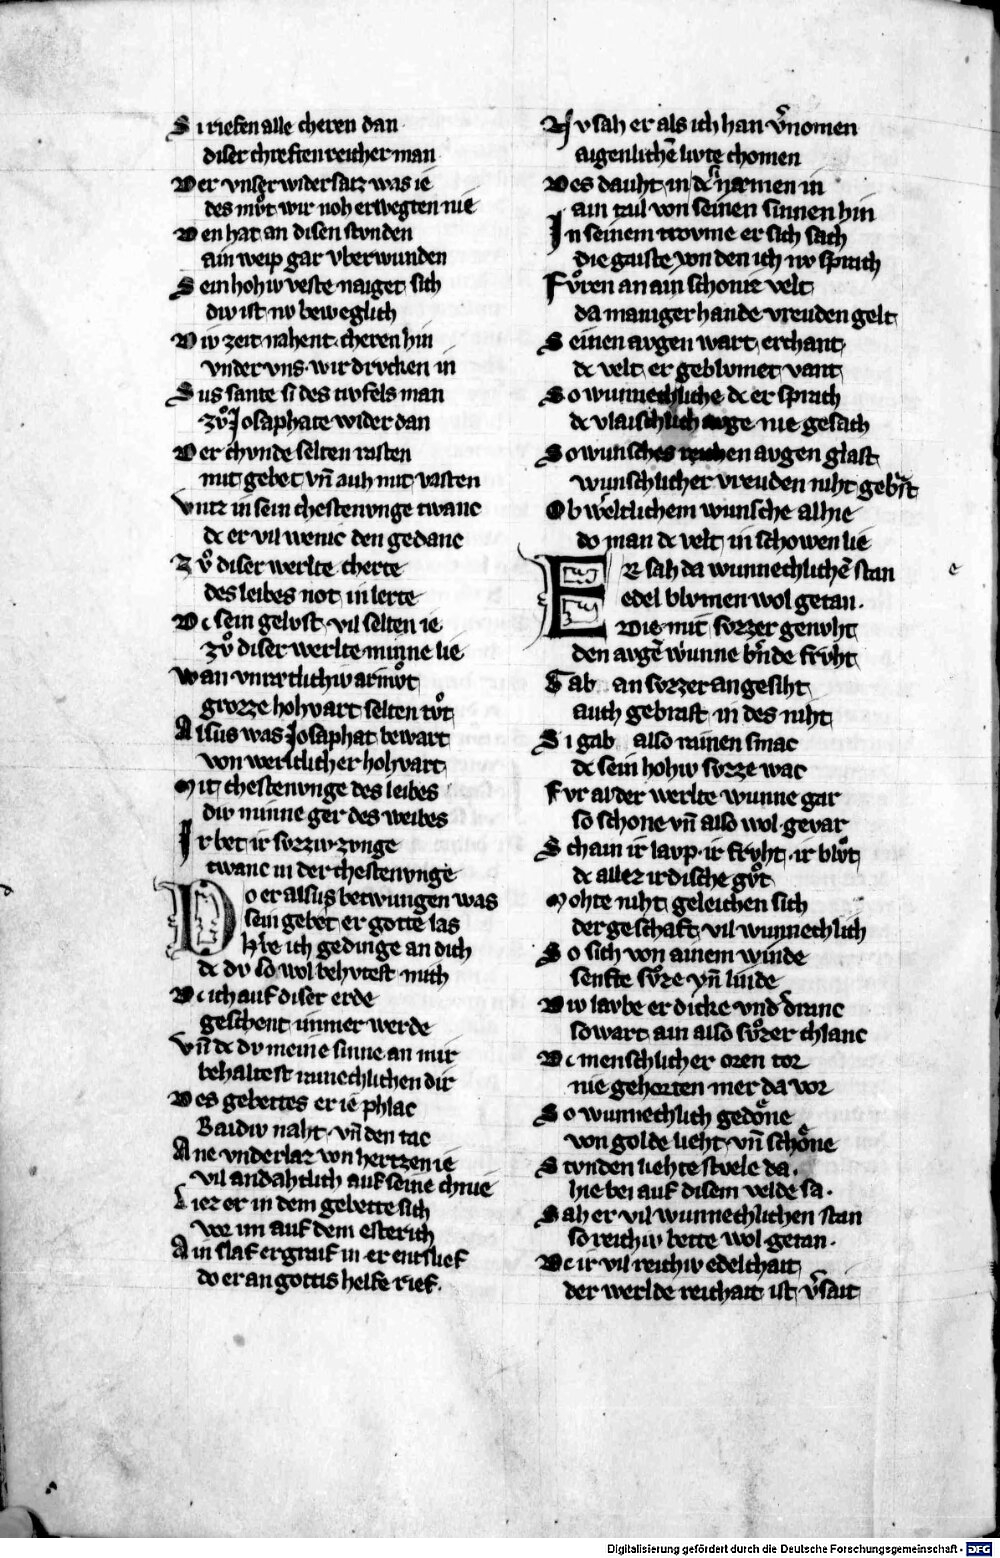 S i riefen alle cheren dan
diser chreften reicher man
W er vnser widersatz was ie
des mvͦt wir noh erwegten nie
W en hat an disen stvnden
ain weip gar vberwunden
S ein hohiv veste naiget sich
div ist nv beweglich
D iv zeit nahent cheren hin
vnder vns wir drvchen in
S us sante si des tivfels man
zvͦ Josaphate wider dan
D er chvnde selten rasten
mit gebet vn̄ auh mit vasten
V ntz in sein chestenvnge twanc
dc er vil wenic den gedanc
Z vͦ diser werlte cherte
des leibes not in lerte
D c sein gelvst vil selten ie
zvͦ diser werlte minne lie
W an vnrertlichiv armvͦt
grozze hohvart selten tvͦt
A lsus was Josaphat bewart
von werltlicher hohvart
M it chestenvnge des leibes
div minne ger des weibes
I r bet ir svzziv zvnge
twanc in der chestenvnge
D o er alsus betwungen was
sein gebet er gotte las
H̄re ich gedinge an dich
dc dv so wol behvtest mich
D c ich auf diser erde
geschent immer werde
V n̄ dc dv meine sinne an mir
behaltest rainechlichen dir
D es gebettes er ie phlac
Baidiv naht vn̄ den tac
A ne vnderlaz von hertzen ie
vil andahtlich auf seine chnie
L iez er in dem gebette sich
vor im auf dem esterich
A in slaf ergraif in er entslief
do er an gottis helfe rief.
N v sah er als ich han v̄nomen
aigenlichē livte chomen
D es dauht in dc si nærmen in
ain tail von seinen sinnen hin
I n seinem trovme er sich sach
die gaiste von den ich nv sprach
F vͦren an ain schonie velt
da maniger hande vreuden gelt
S einen avgen wart erchant
dc velt er geblvmet vant
S o wunnechliche dc er sprach
dc vlaischlich avge nie gesach
S o wunsches reichen avgen glast
wunschlicher vreuden niht gebrast
O b weltlichem wunsche alhie
do man dc velt in schowen lie
E R sah da wunnechlichē stan
edel blvmen wol getan.
Die mit svzzer genvht
den avgē wunne b̄nde frvht
G ab an svzzer angesiht
auch gebrast in des niht
S i gab also rainen smac
dc sein hohiv svzze wac
F vr al der werlte wunne gar
so schone vn̄ also wol gevar
S chain ir lavp ir frvht ir blvͦt
dc allez irdische gvͦt
M ohte niht geleichen sich
der geschaft vil wunnechlich
S o sich von ainem winde
senfte svͦze vn̄ linde
D iv lavbe er dicke vnd dranc
so wart ain also svͦzer chlanc
D c menschlicher oren tor
nie gehorten mer da vor
S o wunnechlich gedoͤne
von golde lieht vn̄ schoͤne
S tvnden liehte stvele da.
hie bei auf disem velde sa.
S ah er vil wunnechlichen stan
so reichiv bette wol getan.
D c ir vil reichiv edelchait
der werlde reichait ist v̄sait